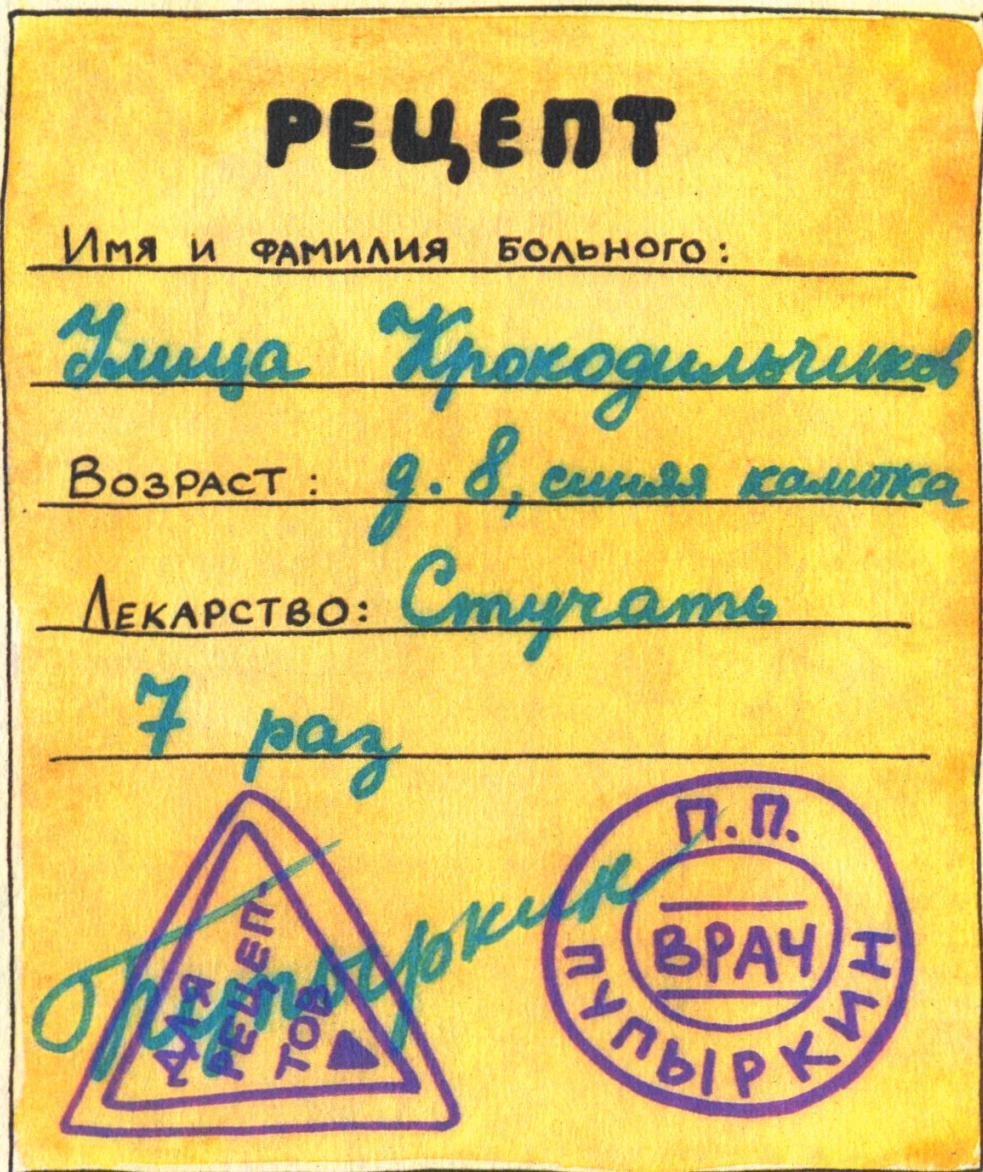 РЕЦЕПТ
Имя и фамилия больного:
Улица Крокодильчиков
Возраст: д. 8, синяя калитка
Лекарство: Стучать
7 раз
Пупыркин
ДЛЯ
РЕЦЕП-
ТОВ
П.П.
ВРАЧ
ПУПЫРКИН